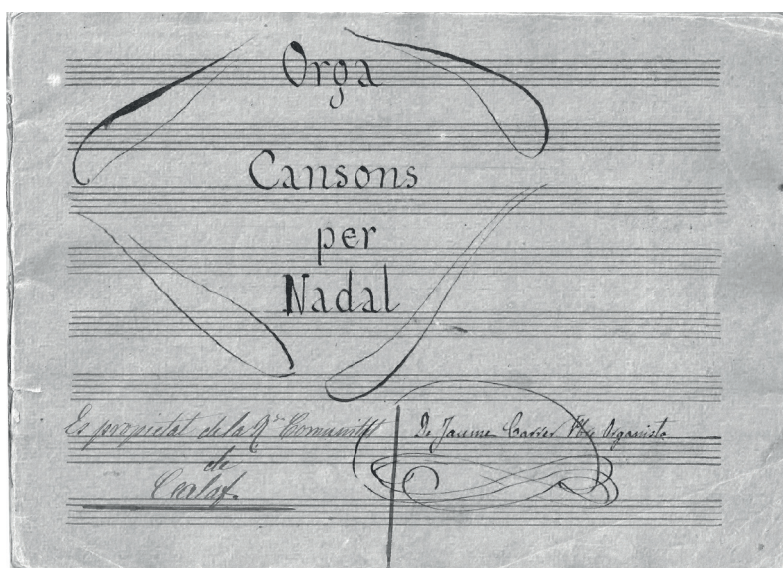 Orga
Cansons
per
Nadal
Es propietat de la Rt Comunitat
de
Calaf.
De Jaume Pbre Organista